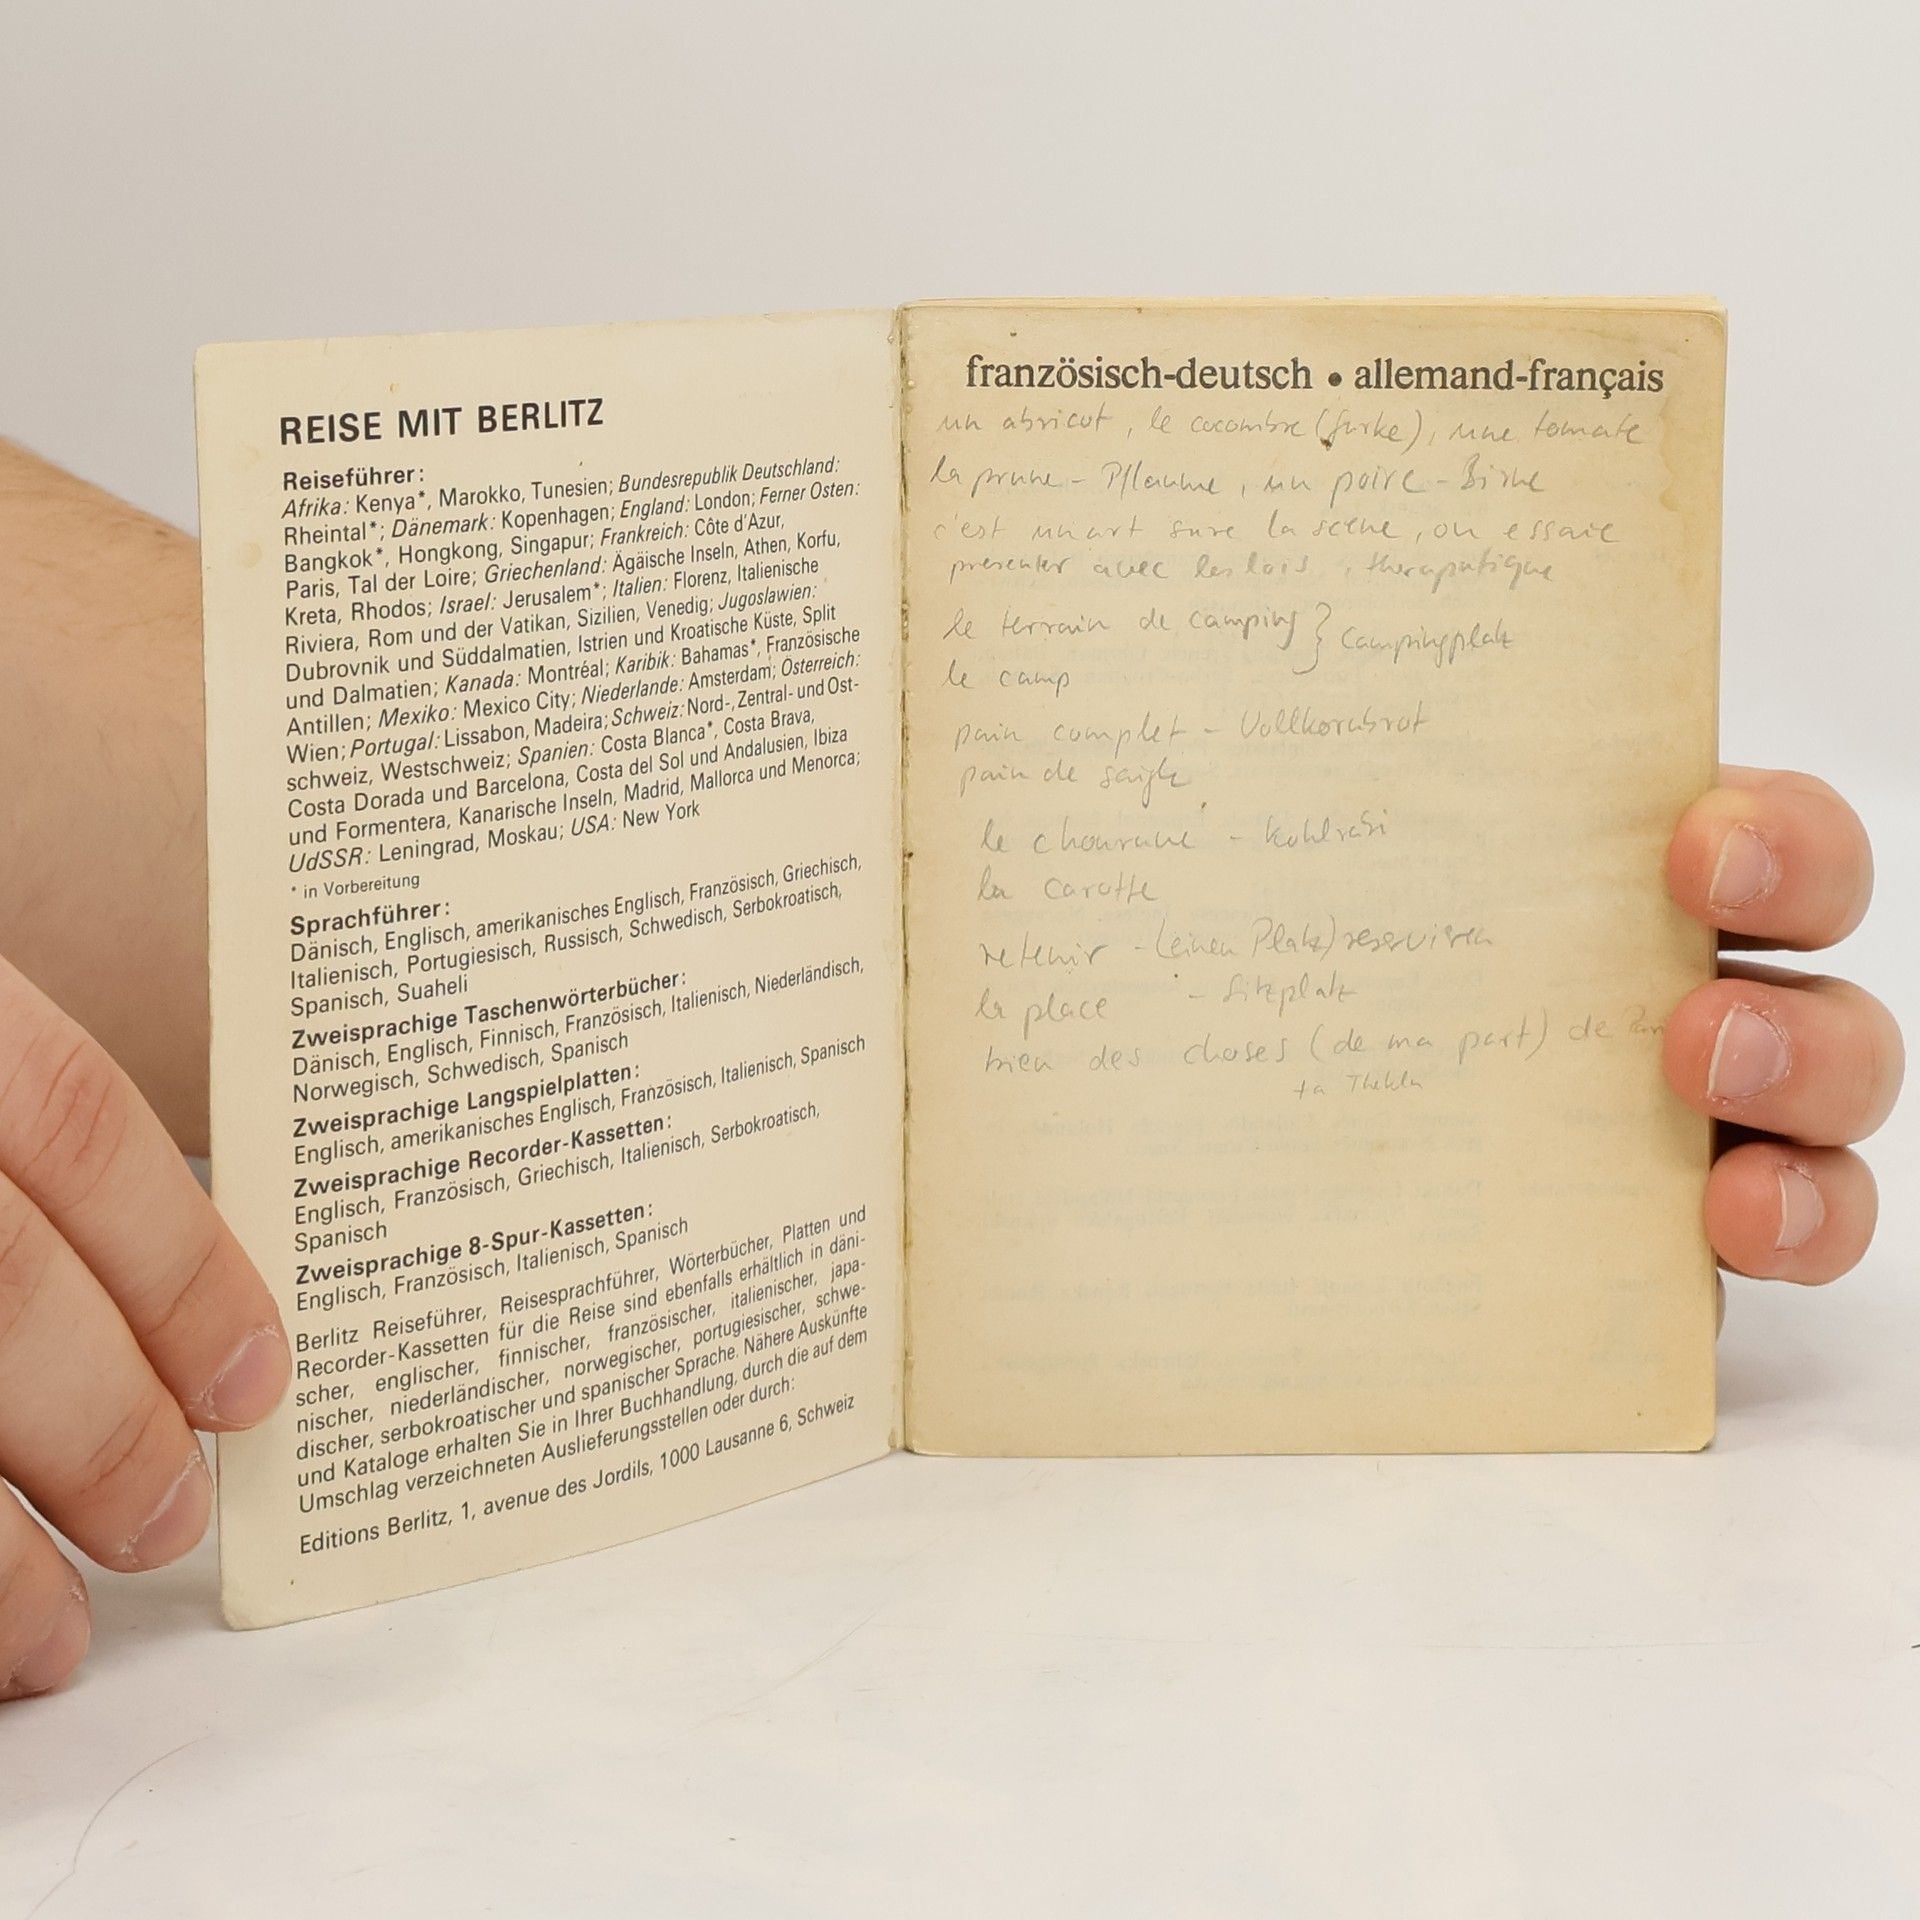 REISE MIT BERLITZ
Reiseführer:
Afrika: Kenya*, Marokko, Tunesien; Bundesrepublik Deutschland:
Rheintal*; Dänemark: Kopenhagen; England: London; Ferner Osten:
Bangkok*, Hongkong, Singapur; Frankreich: Côte d'Azur,
Paris, Tal der Loire; Griechenland: Ägäische Inseln, Athen, Korfu,
Kreta, Rhodos; Israel: Jerusalem*; Italien: Florenz, Italienische
Riviera, Rom und der Vatikan, Sizilien, Venedig; Jugoslawien:
Dubrovnik und Süddalmatien, Istrien und Kroatische Küste, Split
und Dalmatien; Kanada: Montréal; Karibik: Bahamas*, Französische
Antillen; Mexiko: Mexico City; Niederlande: Amsterdam; Österreich:
Wien; Portugal: Lissabon, Madeira; Schweiz: Nord-, Zentral- und Ost-
schweiz, Westschweiz; Spanien: Costa Blanca*, Costa Brava,
Costa Dorada und Barcelona, Costa del Sol und Andalusien, Ibiza
und Formentera, Kanarische Inseln, Madrid, Mallorca und Menorca;
UdSSR: Leningrad, Moskau; USA: New York
* in Vorbereitung
Sprachführer:
Dänisch, Englisch, amerikanisches Englisch, Französisch, Griechisch,
Italienisch, Portugiesisch, Russisch, Schwedisch, Serbokroatisch,
Spanisch, Suaheli
Zweisprachige Taschenwörterbücher:
Dänisch, Englisch, Finnisch, Französisch, Italienisch, Niederländisch,
Norwegisch, Schwedisch, Spanisch
Zweisprachige Langspielplatten:
Englisch, amerikanisches Englisch, Französisch, Italienisch, Spanisch
Zweisprachige Recorder-Kassetten:
Englisch, Französisch, Griechisch, Italienisch, Serbokroatisch,
Spanisch
Zweisprachige 8-Spur-Kassetten:
Englisch, Französisch, Italienisch, Spanisch
Berlitz Reiseführer, Reisesprachführer, Wörterbücher, Platten und
Recorder-Kassetten für die Reise sind ebenfalls erhältlich in däni-
scher, englischer, finnischer, französischer, italienischer, japa-
nischer, niederländischer, norwegischer, portugiesischer, schwe-
discher, serbokroatischer und spanischer Sprache. Nähere Auskünfte
und Kataloge erhalten Sie in Ihrer Buchhandlung, durch die auf dem
Umschlag verzeichneten Auslieferungsstellen oder durch:
Editions Berlitz, 1, avenue des Jordils, 1000 Lausanne 6, Schweiz
französisch-deutsch • allemand-français
un abricot, le cocombre (Gurke), une tomate
la prune - Pflaume, un poire - Birne
c'est un art sure la scene, on essaie
presenter avec les lois,
le terrain de camping } Campingplatz
le camp
pain complet - Vollkornbrot
pain de
le - Kohlrabi
la carotte
retenir - (einen Platz) reservieren
la place - Sitzplatz
bien des choses (de ma part) de